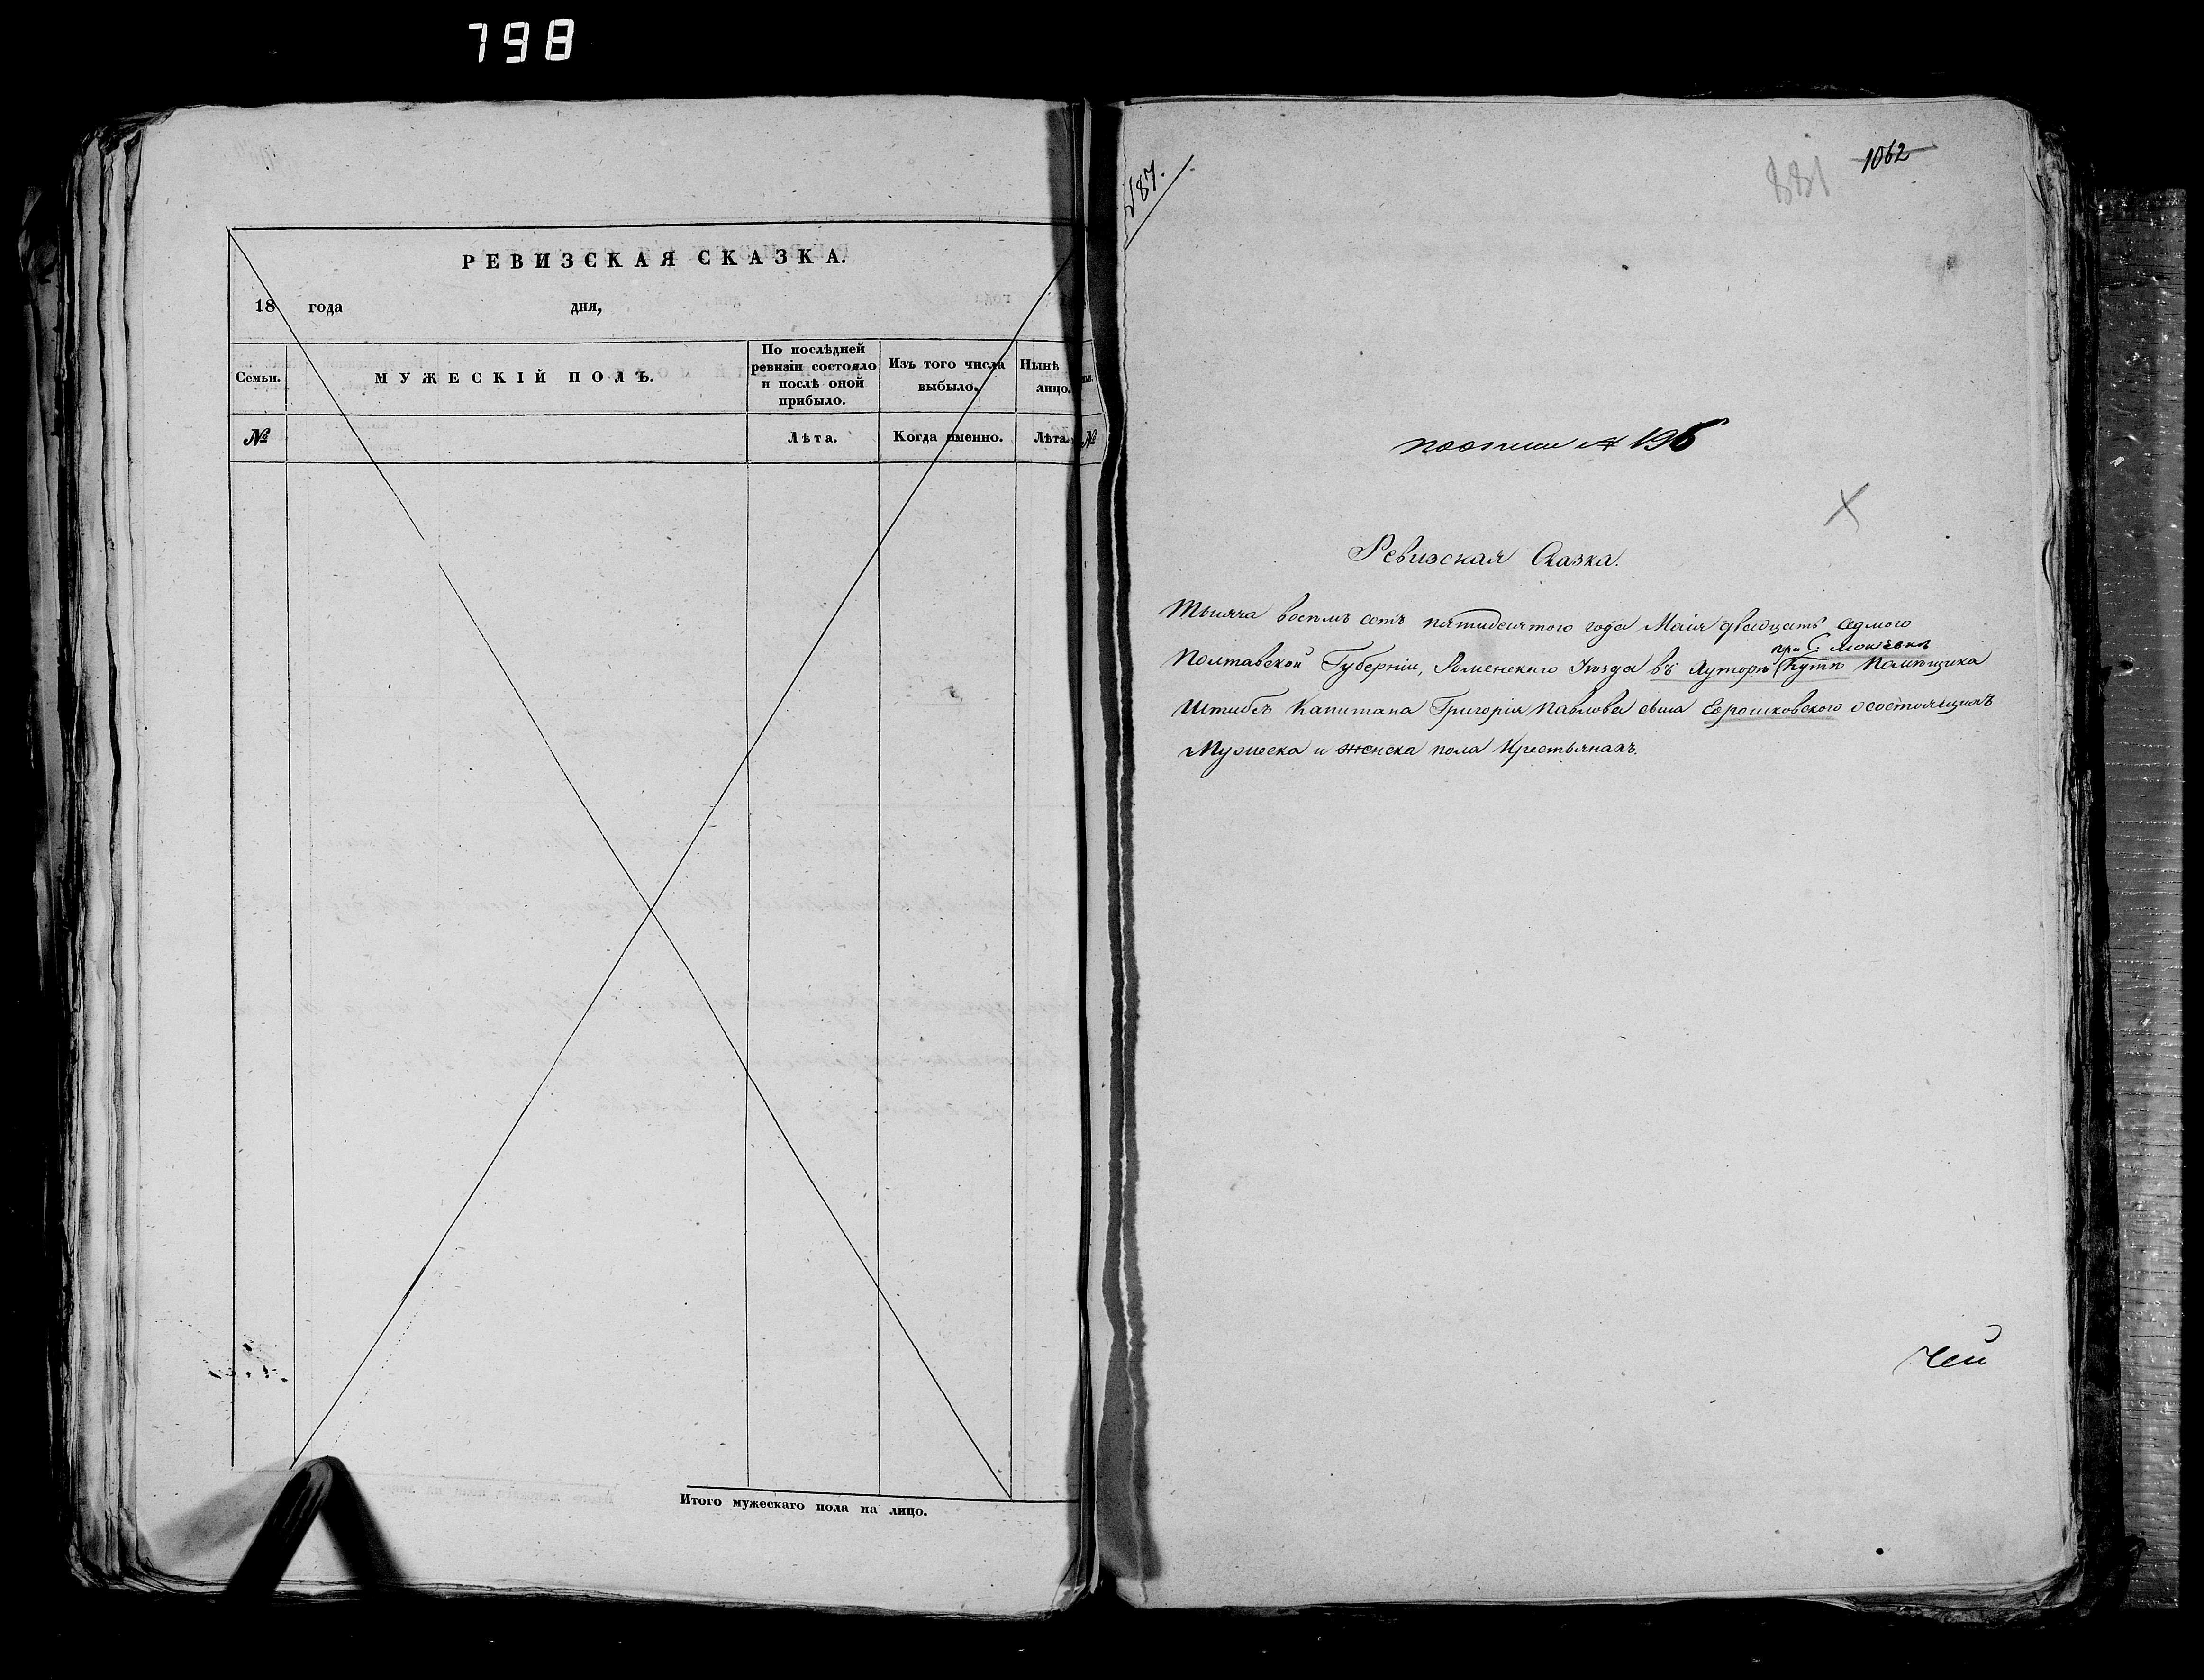 798
РЕВИЗСКАЯ СКАЗКА.
18 года дня,
Семьи.
МУЖЕСКІЙ ПОЛЪ.
По послѣдней ревизіи состояло и послѣ оной прибыло.
Изъ того числа выбыло.
Нынѣ лицо.
№
Лѣта.
Когда именно.
Лѣта.
№
Итого мужескаго пола на лицо.
187.
881
1062
№ 196
Ревизская Сказка.
Тысяча восемъ сотъ пятидесятого года Маія двадцать седмого
при С. Мокіевкѣ
Полтавской Губерніи, Роменскаго Уѣзда въ Хуторѣ Кутѣ Помѣщика
Штабсъ Капитана Григорія Павлова сына Ерошковского о состоящихъ
Мужеска и женска пола Крестьянахъ.